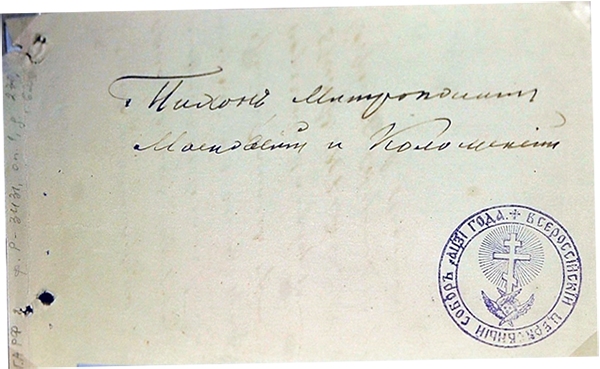 Тихонъ Митрополитъ
Московскій и Коломенскій
ВСЕРОССІЙСКІЙ ЦЕРКОВНЫЙ СОБОРЪ ҂АЦЗІ ГОДА.
ГАРФ ф. Р-3431, оп. 1,